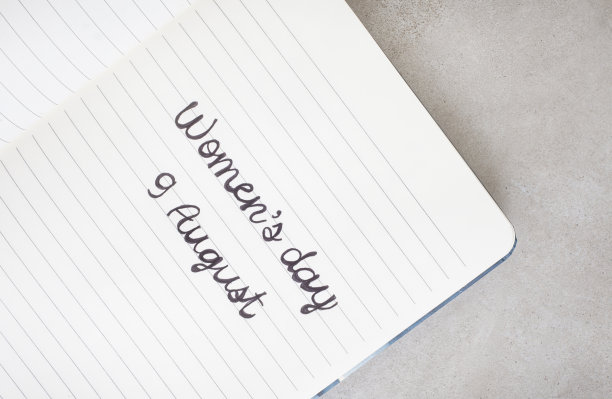 Women's day
9 August